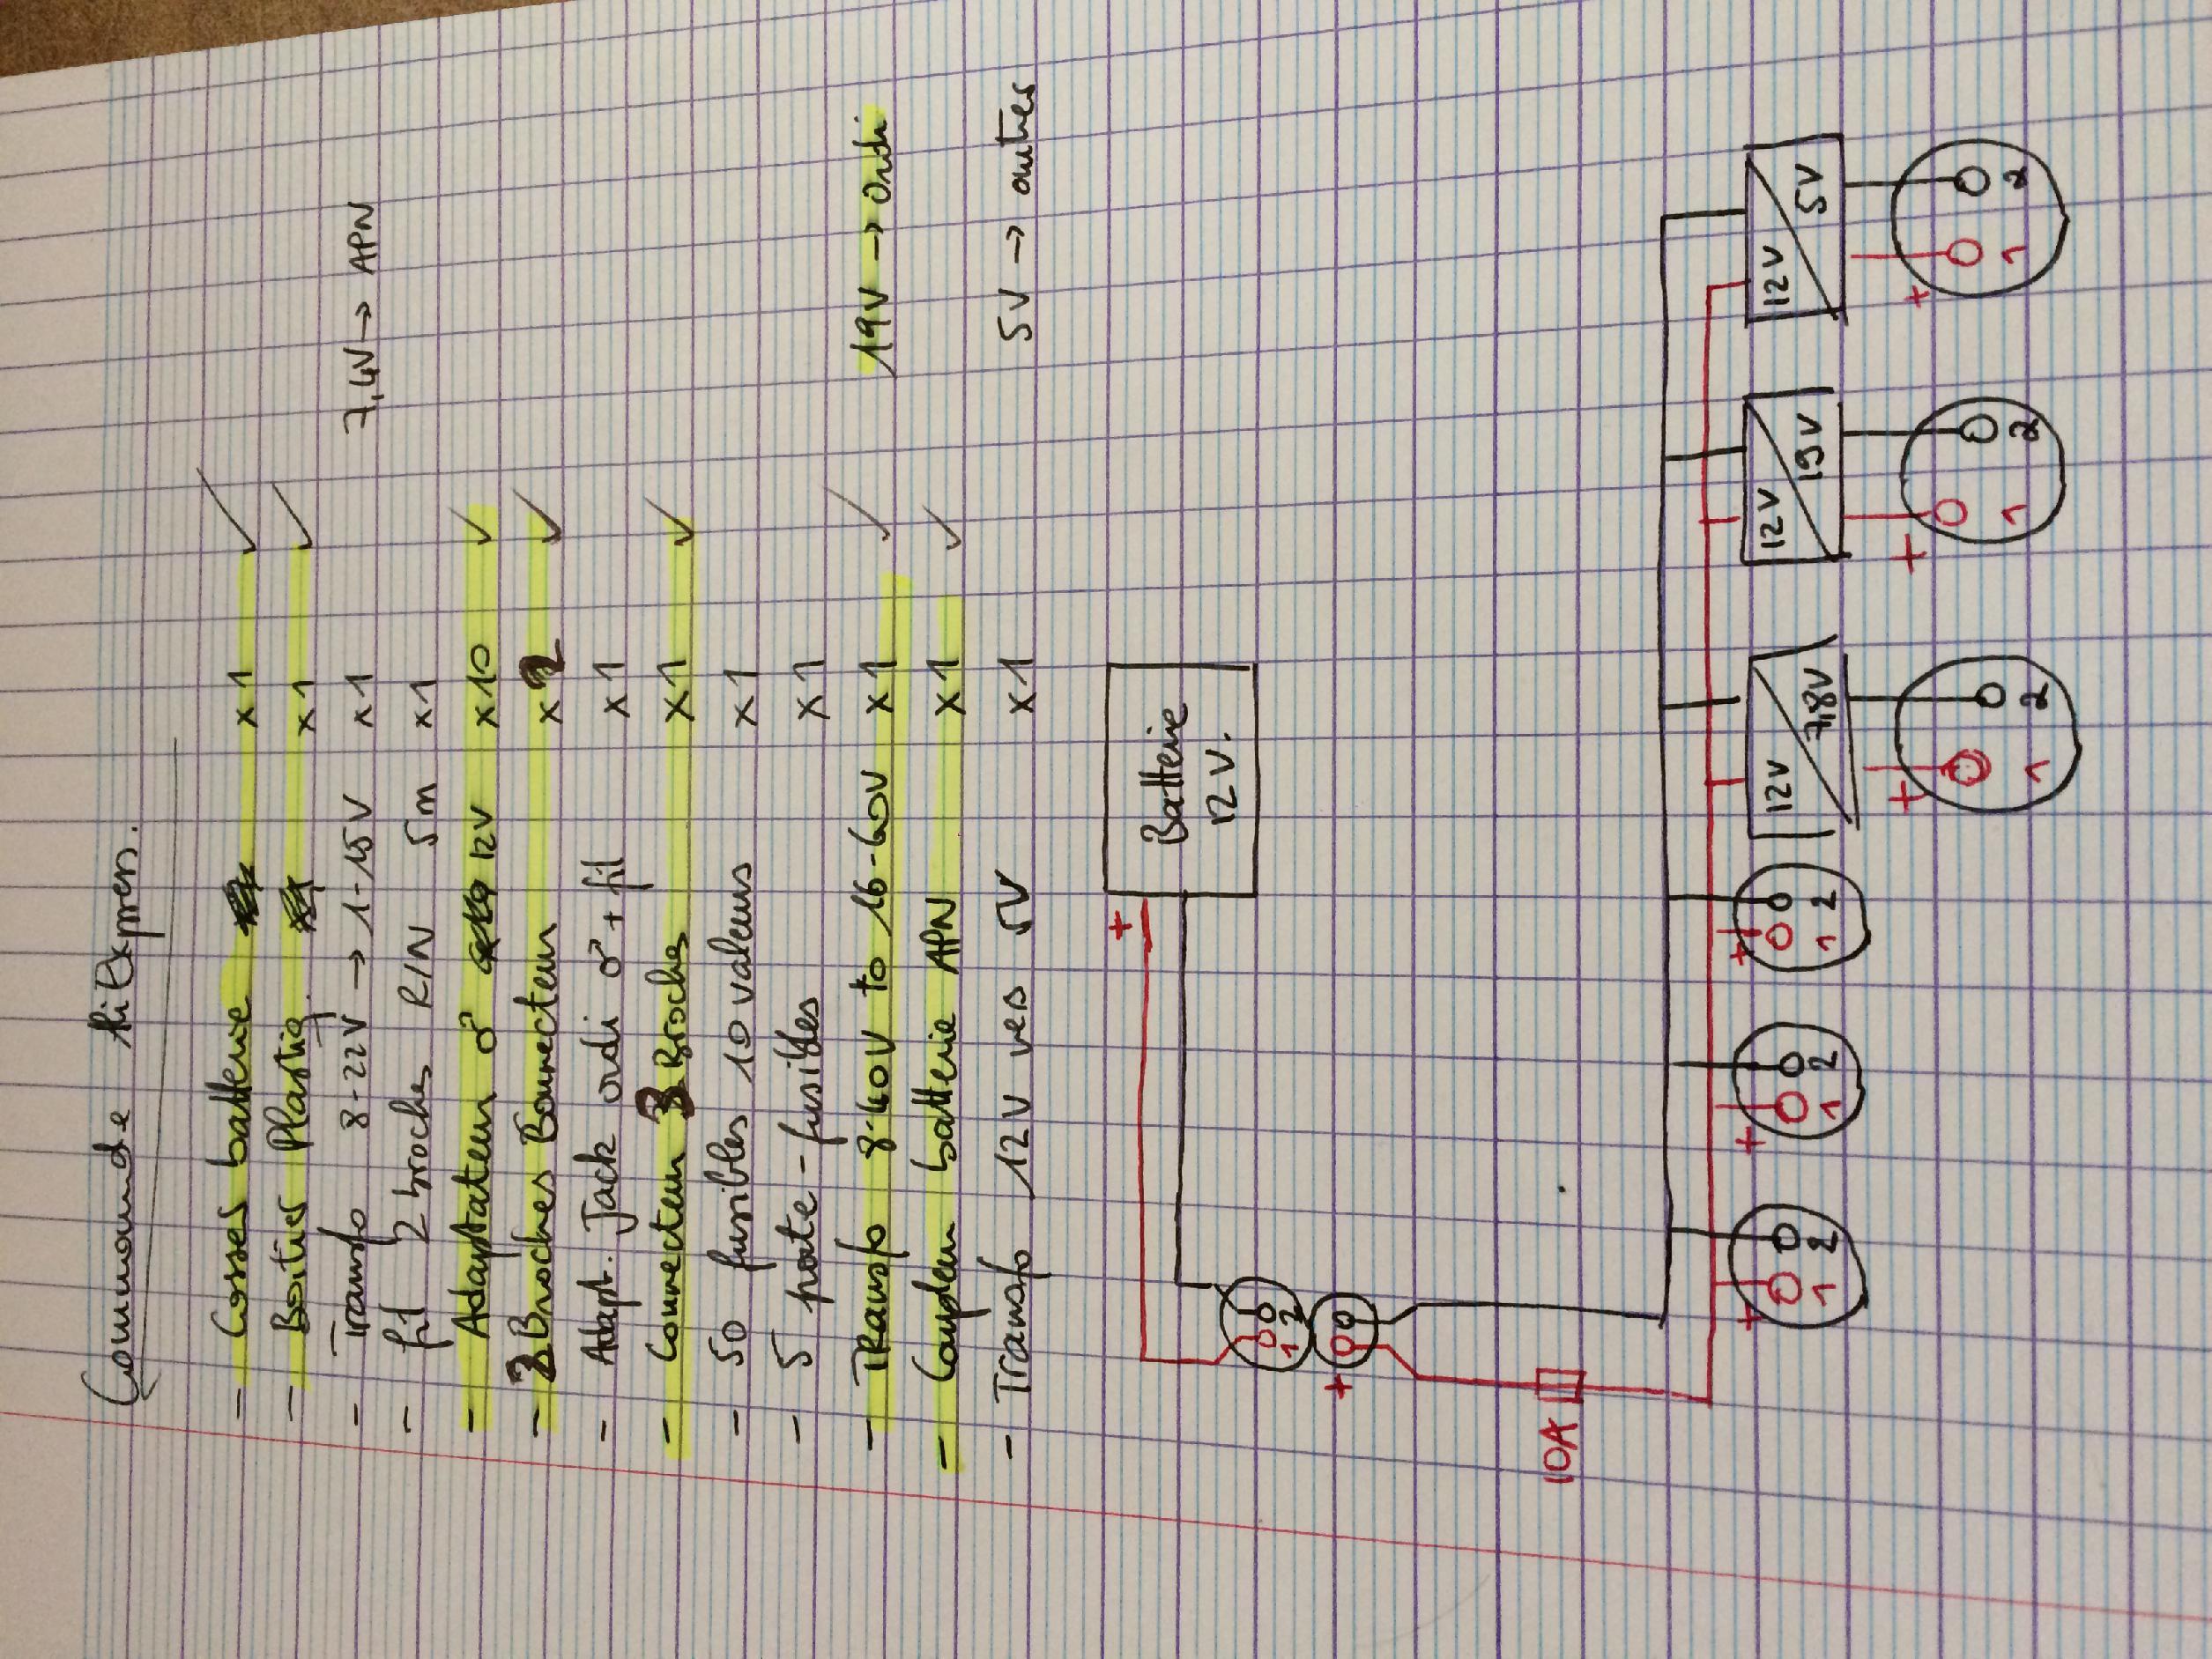 Commande AliExpress.
- Cosses batterie x1 ✓
- Boitier Plastiq. x1 ✓
- Transfo 8-22V → 1-15V x1 7,4V → APN
- fil 2 broches R/N 5m x1
- Adaptateur ♂ 12V x10 ✓
- 3 Broches Connecteur x2 ✓
- Adapt. Jack ordi ♂ + fil x1
- Connecteur 3 Broches x1 ✓
- 50 fusibles 10 valeurs x1
- 5 porte-fusibles x1
- Transfo 8-40V to 16-60V x1 ✓ 19V → Ordi
- Coupleur batterie APN x1 ✓
- Transfo 12V vers 5V x1 5V → autres
+
Batterie
12V.
1 2
+
10A
12V 7,8V 12V 19V 12V 5V
+ + + + + +
1 2 1 2 1 2 1 2 1 2 1 2